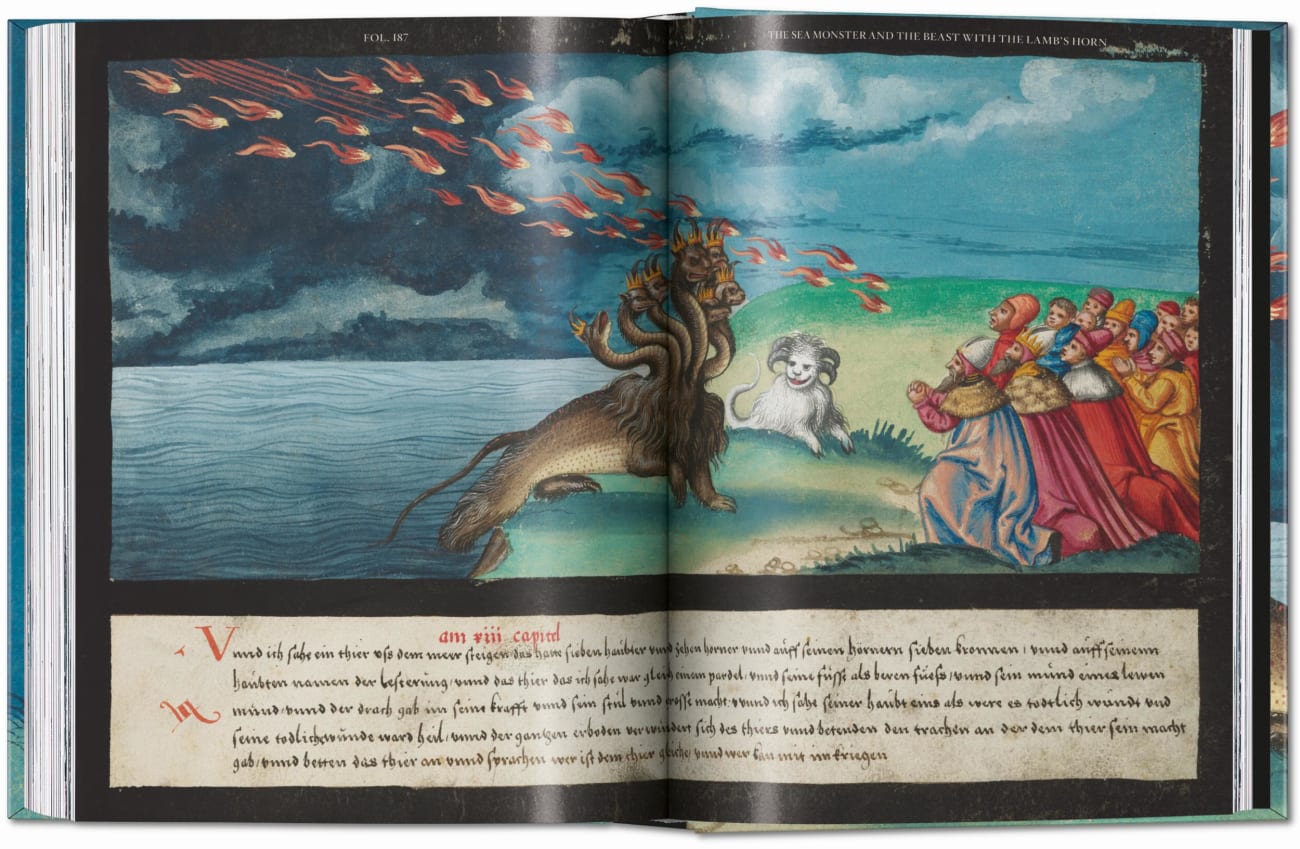 FOL. 187
THE SEA MONSTER AND THE BEAST WITH THE LAMB'S HORN
am xiii capitel
Vnnd ich sahe ein thier vſs dem meer steigen das hatte sieben haübter vnnd zehen horner vnnd aüff seinen hörnern sieben kronnen / vnnd aüff seinenn
haübten namen der lesterung / vnnd das thier das ich sahe war gleich einem pardel / vnnd seine füsse als beren füess / vnnd sein münd eines lewen
münd / vnnd der drach gab im seine krafft vnnd sein stül vnnd grosse macht / vnnd ich sahe seiner haübt eins als were es todtlich wündt vnd
seine todlich wünde ward heil / vnnd der gantzen erboden verwundert sich des thiers vnnd betenden den trachen an der dem thier sein macht
gab / vnnd betten das thier an vnnd sprachen wer ist dem thier gleiche / vnnd wer kan mit im kriegen